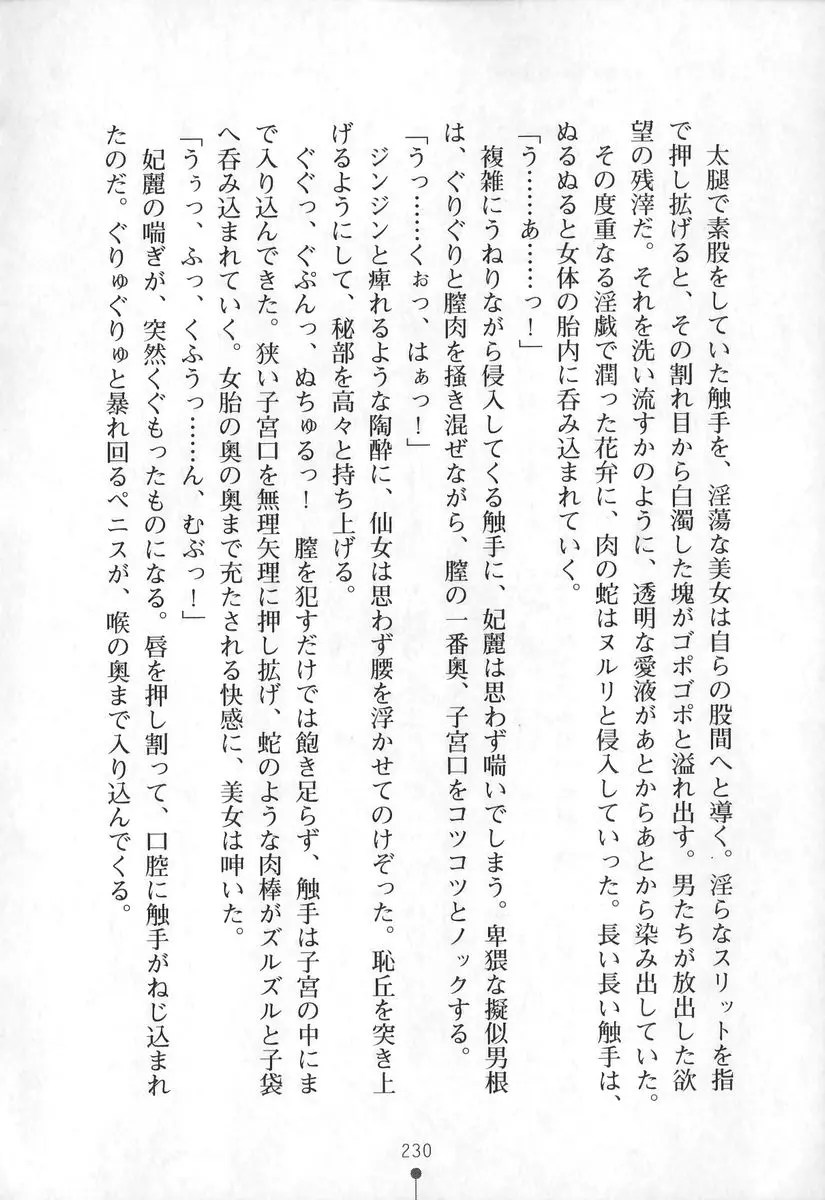 太腿で素股をしていた触手を、淫蕩な美女は自らの股間へと導く。淫らなスリットを指
で押し拡げると、その割れ目から白濁した塊がゴポゴポと溢れ出す。男たちが放出した欲
望の残滓だ。それを洗い流すかのように、透明な愛液があとからあとから染み出していた。
その度重なる淫戯で潤った花弁に、肉の蛇はヌルリと侵入していった。長い長い触手は、
ぬるぬると女体の胎内に呑み込まれていく。
「う……ぁ……っ！」
複雑にうねりながら侵入してくる触手に、妃麗は思わず喘いでしまう。卑猥な擬似男根
は、ぐりぐりと膣肉を掻き混ぜながら、膣の一番奥、子宮口をコツコツとノックする。
「うっ……くぉっ、はぁっ！」
ジンジンと痺れるような陶酔に、仙女は思わず腰を浮かせてのけぞった。恥丘を突き上
げるようにして、秘部を高々と持ち上げる。
ぐぐっ、ぐぷんっ、ぬちゅるっ！　膣を犯すだけでは飽き足らず、触手は子宮の中にま
で入り込んできた。狭い子宮口を無理矢理に押し拡げ、蛇のような肉棒がズルズルと子袋
へ呑み込まれていく。女胎の奥の奥まで充たされる快感に、美女は呻いた。
「うぅっ、ふっ、くふうっ……ん、むぶっ！」
妃麗の喘ぎが、突然くぐもったものになる。唇を押し割って、口腔に触手がねじ込まれ
たのだ。ぐりゅぐりゅと暴れ回るペニスが、喉の奥まで入り込んでくる。
230